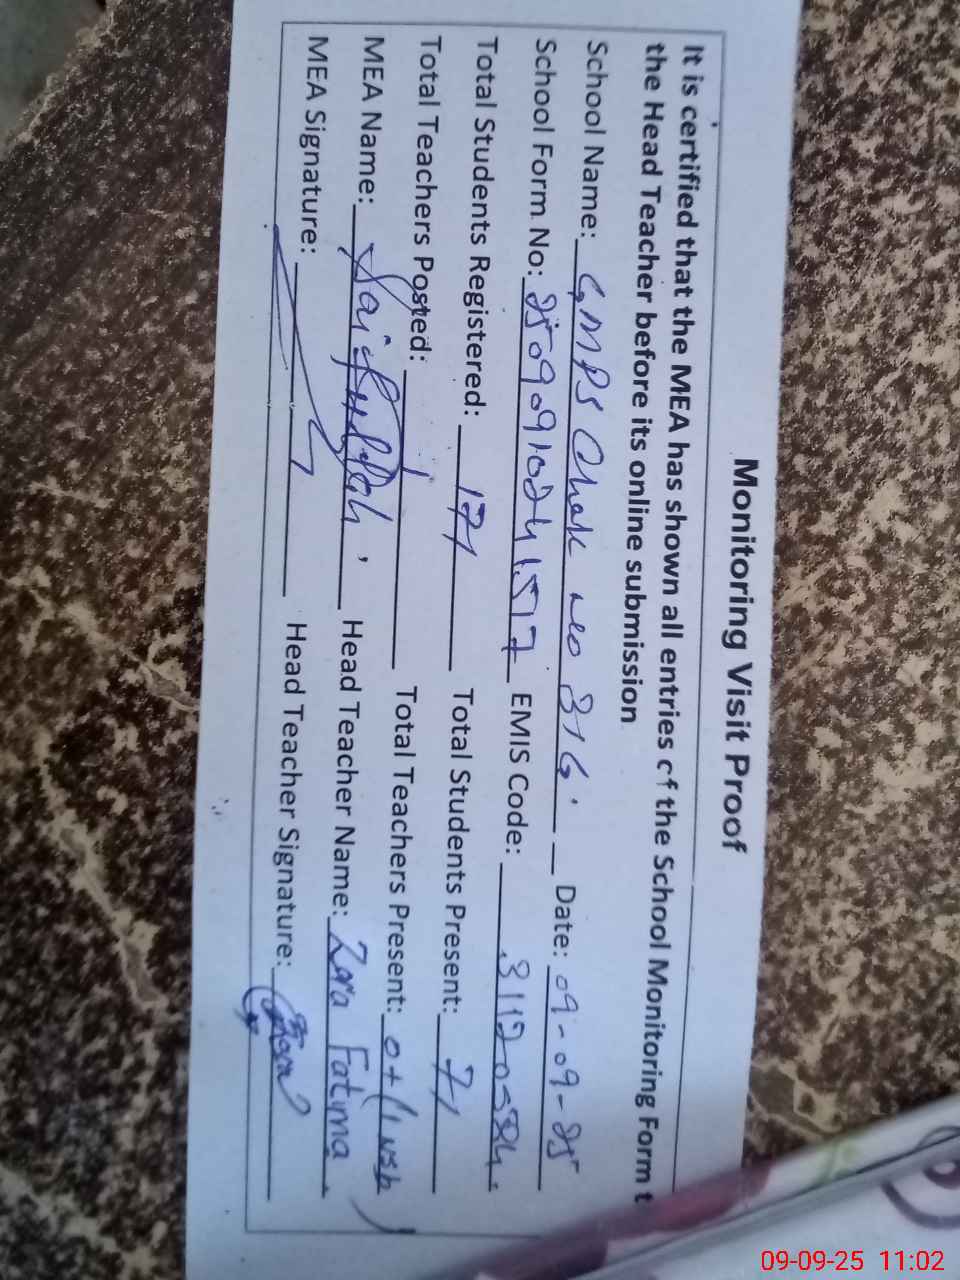 Monitoring Visit Proof
It is certified that the MEA has shown all entries of the School Monitoring Form t
the Head Teacher before its online submission
School Name: GMPS Chak no 316 Date: 09-09-25
School Form No: 25090910241517 EMIS Code:
Total Students Registered: 171 Total Students Present: 71
Total Teachers Posted: 1 Total Teachers Present: 0+(1
MEA Name: Saifullah Head Teacher Name: Zara Fatima
MEA Signature: Head Teacher Signature:
09-09-25 11:02